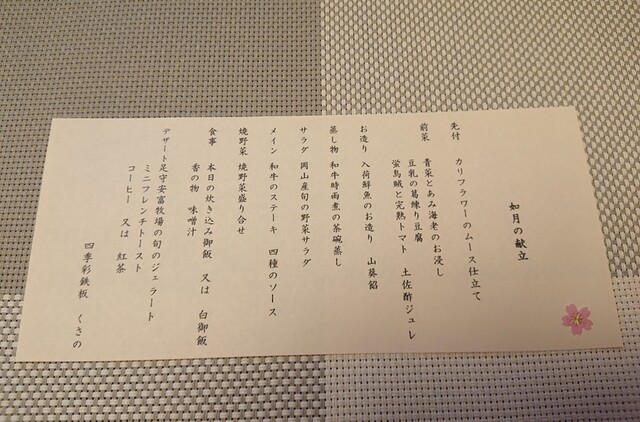 如月の献立
先付　カリフラワーのムース仕立て
前菜　青菜とあみ海老のお浸し
豆乳の葛練り豆腐
蛍烏賊と完熟トマト　土佐酢ジュレ
お造り　入荷鮮魚のお造り　山葵餡
蒸し物　和牛時雨煮の茶碗蒸し
サラダ　岡山産旬の野菜サラダ
メイン　和牛のステーキ　四種のソース
焼野菜　焼野菜盛り合せ
食事　本日の炊き込み御飯　又は　白御飯
香の物　味噌汁
デザート　足守安富牧場の旬のジェラート
ミニフレンチトースト
コーヒー　又は　紅茶
四季彩鉄板　くさの